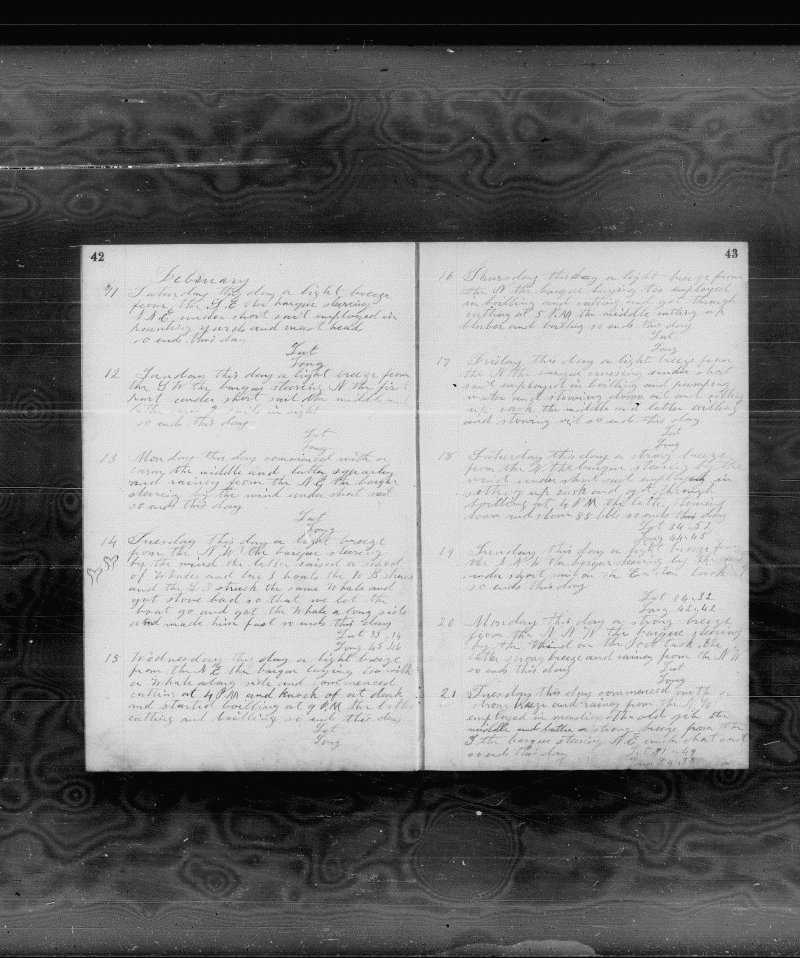 42
February
11 Saturday this day a light breeze
from the S.E. the barque steering
S.S.E. under short sail employed in
painting yards and mast head
so ends this day
Lat
Long
12 Sunday this day a light breeze from
the S W the barque steering N the first
part under short sail the middle and
latter part 2 sails in sight
so ends this day
Lat
Long
13 Monday this day commenced with a
calm the middle and latter squarley
and rainey from the N E the barque
steering by the wind under short sail
so ends this day
Lat
Long
14 Tuesday this day a light breeze
from the N W the barque steering
by the wind the latter raised a school
of Whales and low 3 boats the W B struck
and the L B struck the same Whale and
got stove bad so that we let the
boat go and got the Whale a long side
and made him fast so ends this day
Lat 35.14
Long 45.46
15 Wednesday this day a light breeze
from the N E the barque laying too with
a Whale along side and commenced
cutting at 4 P M and knock of at dark
and started boilling at 9 P M the latter
cutting and boilling so ends this day
Lat
Long
43
16 Thursday this day a light breeze from
the N the barque laying too employed
in boilling and cutting and got through
cutting at 5 P.M. the middle cutting up
blubber and boiling so ends this day
Lat
Long
17 Friday this day a light breeze from
the N the barque under short
sail employed in boilling and pumping
water and stowing down oil and setting
up cask the middle and latter boilling
and stowing oil so ends this day
Lat
Long
18 Saturday this day a strong breeze
from the N the barque steering by the
wind under short sail employed in
setting up cask and got through
boilling at 4 P M the latter stowing
down and stove 55 bbls so ends this day
Lat 34.52
Long 44.45
19 Sunday this day a light breeze from
the N N W the barque steering by the wind
under short sail on the Eastern tack
so ends this day
Lat 34.32
Long 42.42
20 Monday this day a strong breeze
from the N N W the barque steering
by the Wind on the Port tack the
latter strong breeze and rainey from the N W
so ends this day
Lat
Long
21 Tuesday this day commenced with a
strong breeze and rainey from the N W
employed in mending the old gib the
middle and latter a strong breeze from the
S the barque steering N E under short sail
so ends this day
Lat 31.49
Long 39.38